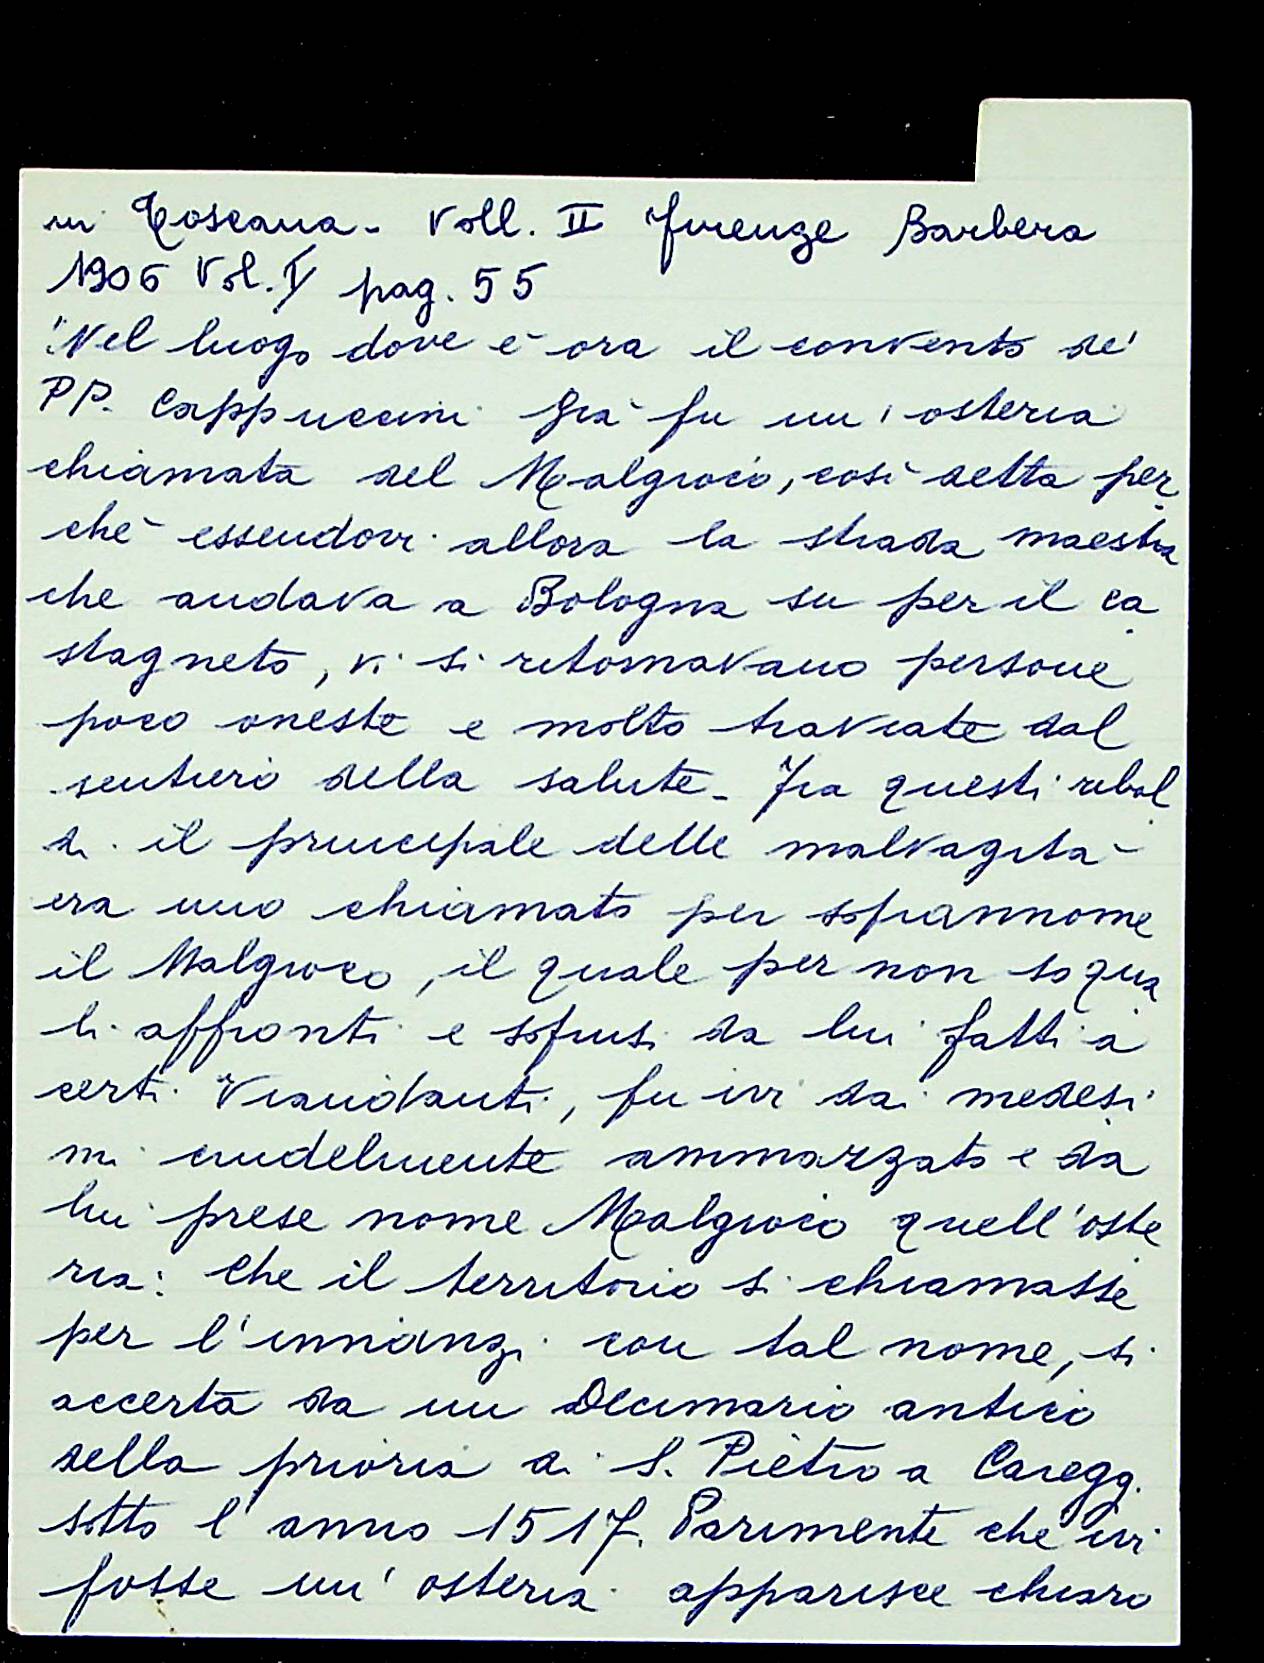 in Toscana - Voll. II Firenze Barbera
1906 Vol. I pag. 55
"Nel luogo dove è ora il convento de'
PP. Cappuccini già fu un'osteria
chiamata del Malgioco, così detta per
chè essendovi allora la strada maestra
che andava a Bologna su per il ca
stagneto, vi si ritornavano persone
poco oneste e molto traviate dal
sentiero della salute - Fra questi ribal
di il principale delle malvagità
era uno chiamato per soprannome
il Malgioco, il quale per non so qua
li affronti e soprusi da lui fatti a
certi viandanti, fu ivi dai medesi
mi crudelmente ammazzato e da
lui prese nome Malgioco quell'oste
ria: che il territorio si chiamasse
per l'innanzi con tal nome, si
accerta da un Decimario antico
della prioria di S. Pietro a Caregg.
sotto l'anno 1517. Parimente che ivi
fosse un'osteria apparisce chiaro